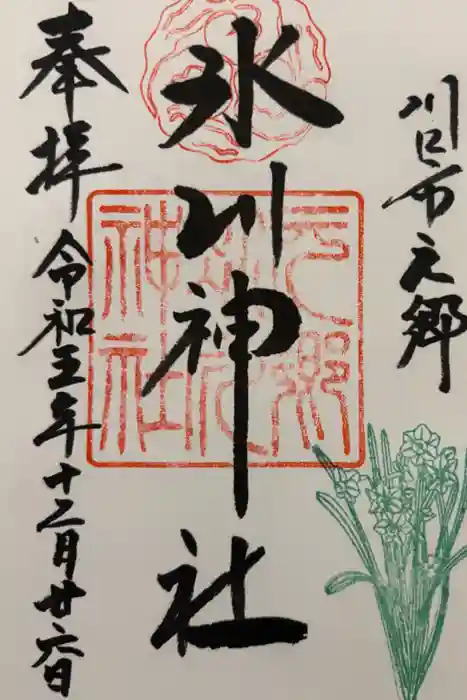 川口市元郷
氷川神社
奉拝 令和五年十二月廿六日
元郷
氷川
神社